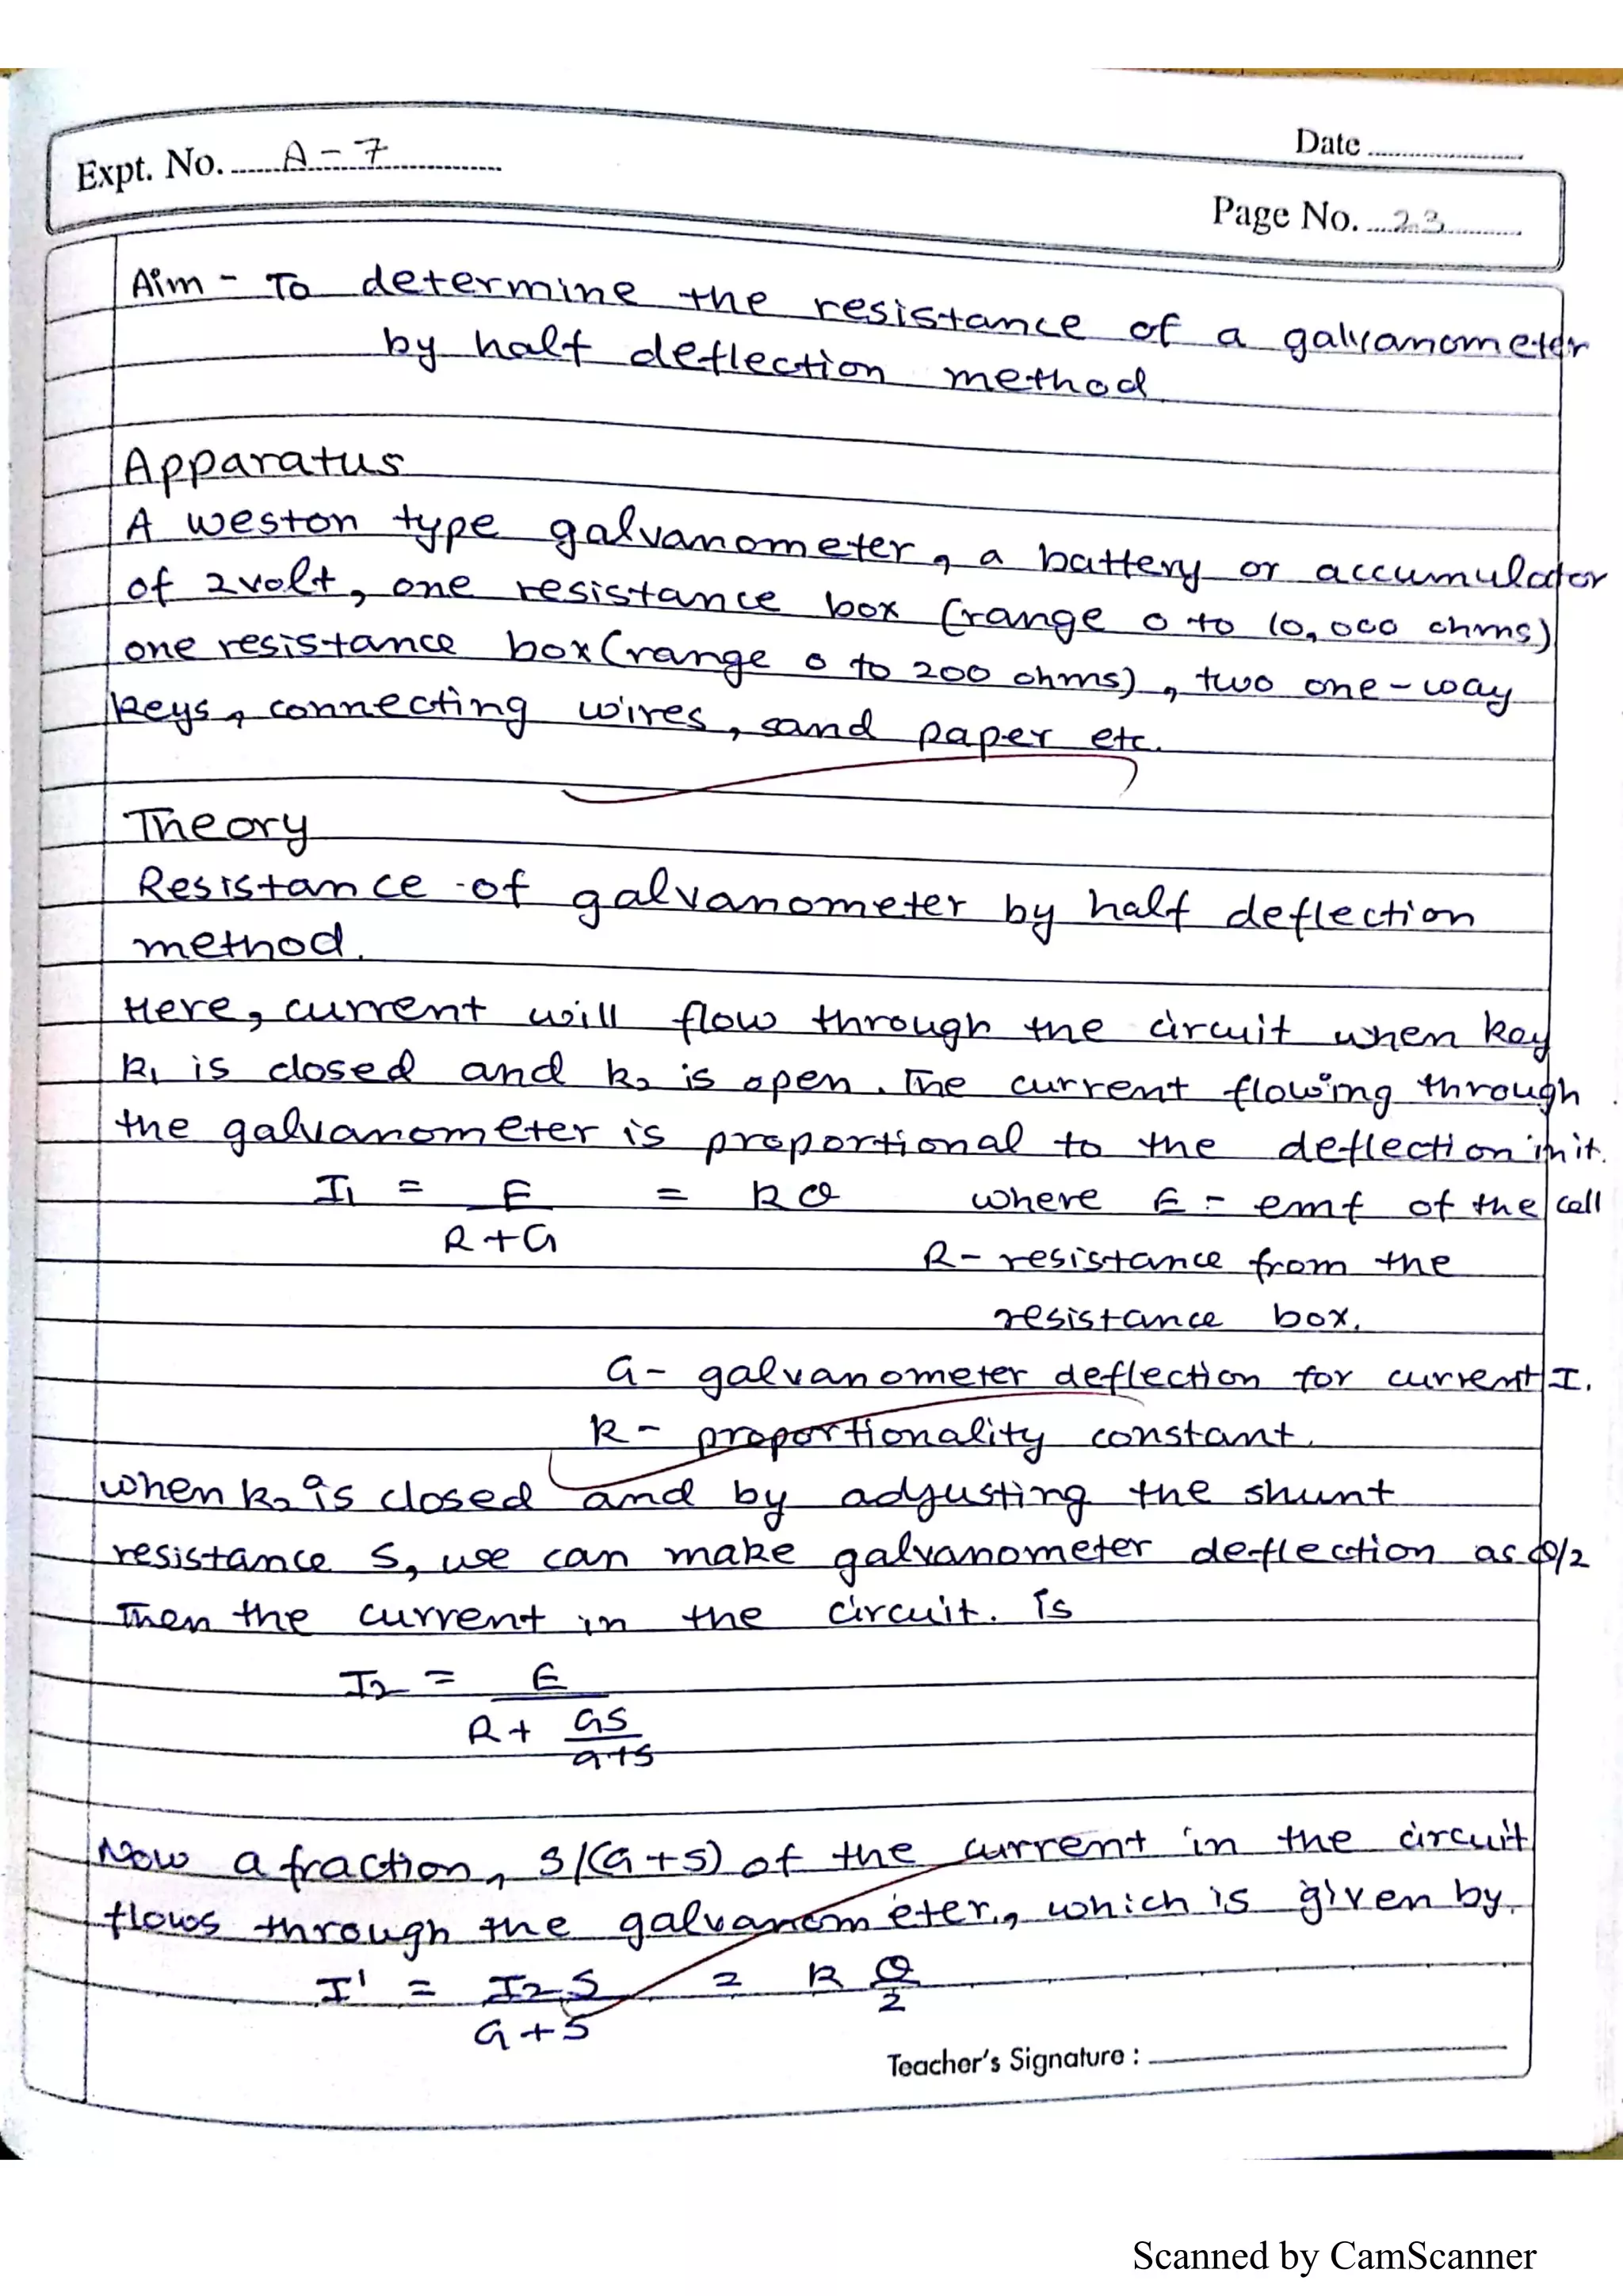 Expt. No. A-7
Date
Page No. 23
Aim - To determine the resistance of a galvanometer
by half deflection method
Apparatus
A weston type galvanometer, a battery or accumulator
of 2volt, one resistance box (range 0 to 10,000 ohms)
one resistance box (range 0 to 200 ohms), two one-way
keys, connecting wires, sand paper etc.
Theory
Resistance of galvanometer by half deflection
method.
Here, current will flow through the circuit when key
k₁ is closed and k₂ is open. The current flowing through
the galvanometer is proportional to the deflection in it.
I₁ = E = kθ where E = emf of the cell
R+G
R- resistance from the
resistance box.
G- galvanometer deflection for current I.
k- proportionality constant.
when k₂ is closed and by adjusting the shunt
resistance S, we can make galvanometer deflection as θ/2
Then the current in the circuit. is
I₂ = E
R + GS
G+S
Now a fraction, S/(G+S) of the current in the circuit
flows through the galvanometer, which is given by.
I' = I₂S = k θ
G+S 2
Teacher's Signature :
Scanned by CamScanner